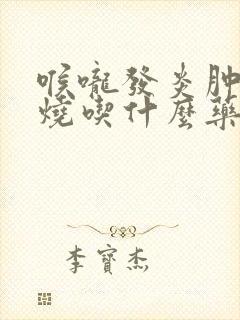 喉嚨發炎肿
燒喫什麼藥
李寶杰